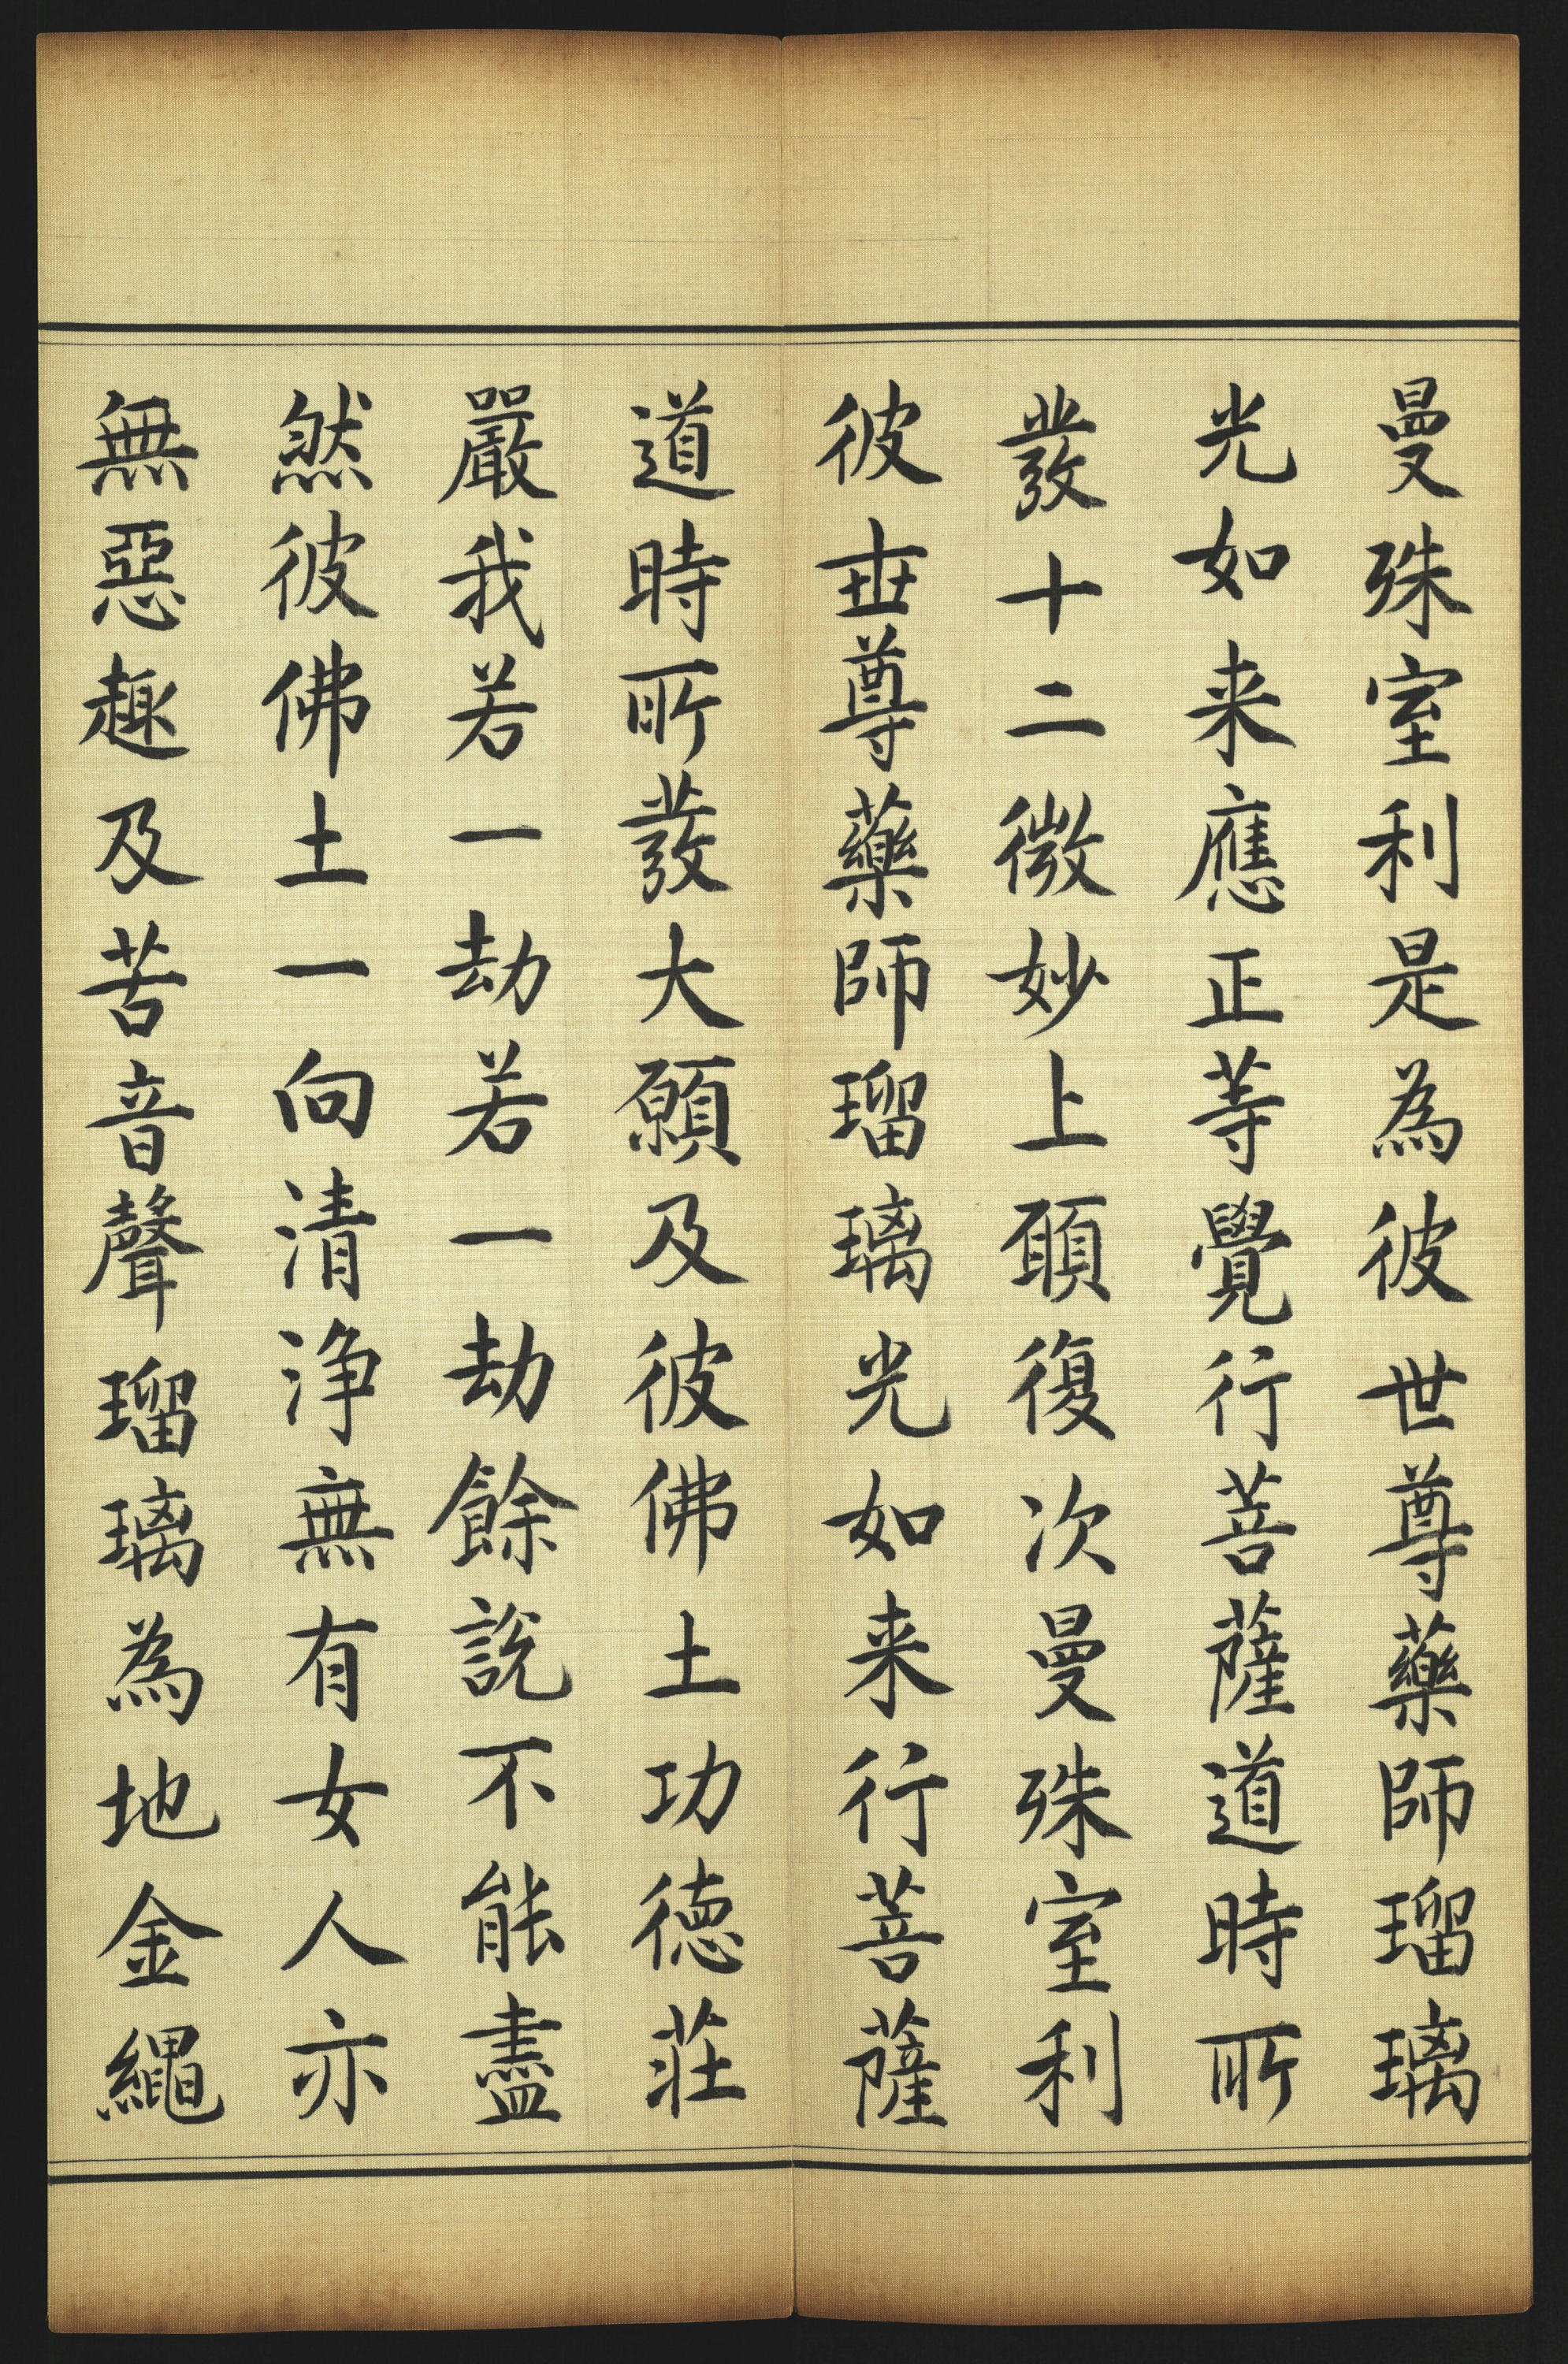 曼殊室利是為彼世尊藥師瑠璃
光如来應正等覺行菩薩道時所
發十二微妙上願復次曼殊室利
彼世尊藥師瑠璃光如来行菩薩
道時所發大願及彼佛土功德莊
嚴我若一劫若一劫餘說不能盡
然彼佛土一向清淨無有女人亦
無惡趣及苦音聲瑠璃為地金繩